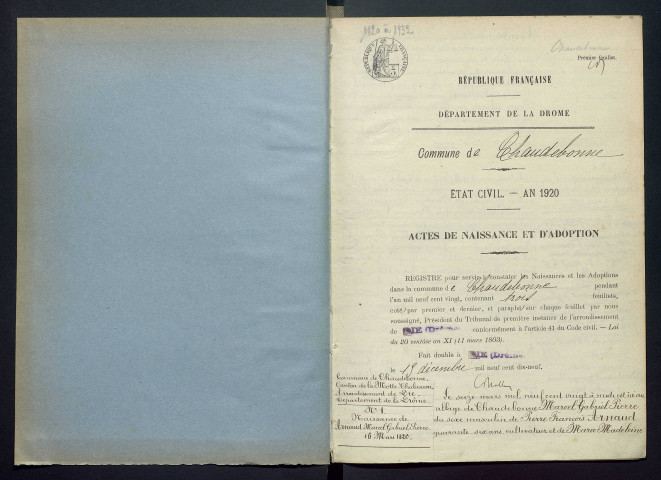 1920 à 1932
Chaudebonne
Premier feuillet.
RÉPUBLIQUE FRANÇAISE
DÉPARTEMENT DE LA DROME
Commune de Chaudebonne
ETAT CIVIL. — AN 1920
ACTES DE NAISSANCE ET D'ADOPTION
REGISTRE pour servir à constater les Naissances et les Adoptions
dans la commune de Chaudebonne pendant
l'an mil neuf cent vingt, contenant trois feuillets,
coté par premier et dernier, et paraphé sur chaque feuillet par nous
soussigné, Président du Tribunal de première instance de l'arrondissement
de DIE (Drôme) conformément à l'article 41 du Code civil. — Loi
du 20 ventôse an XI (11 mars 1803).
Fait double à DIE (Drôme)
le décembre mil neuf cent dix-neuf.
Commune de Chaudebonne,
Canton de la Motte Chalancon,
Arrondissement de Die,
Département de la Drôme.
N° 1.
Naissance de
Arnaud Marcel Gabriel Pierre
16 Mars 1920.
Le seize mars mil neuf cent vingt à midi est né au
village de Chaudebonne Marcel Gabriel Pierre
du sexe masculin de Pierre François Arnaud
quarante six ans, cultivateur et de Marie Madeleine